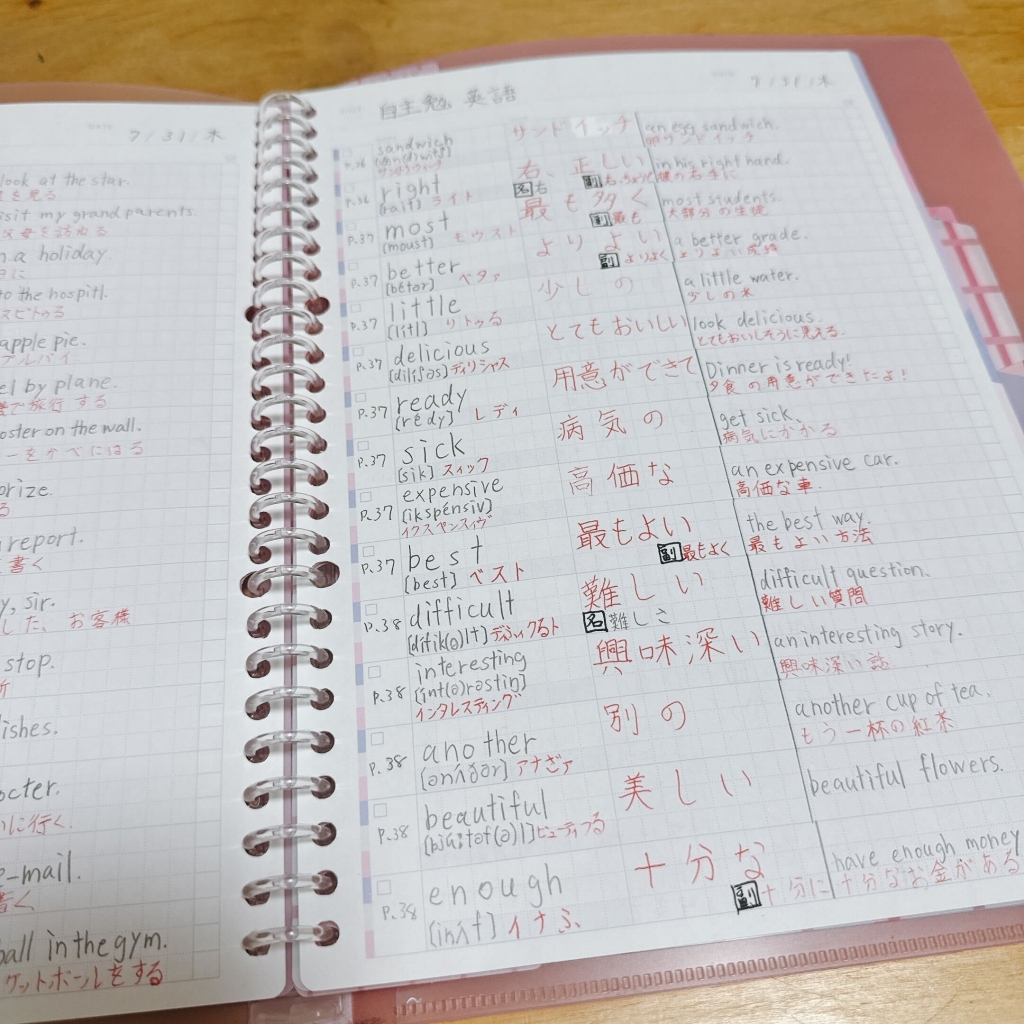 7/31/木
look at the star.
を見る
isit my grand parents.
父母を訪ねる
a holiday.
日に
to the hospitl.
apple pie.
プルパイ
el by plane.
で旅行する
oster on the wall.
ーをかべにはる
orize.
る
report.
書く
y, sir.
した、お客様
stop.
所
lishes.
octer.
いに行く.
e-mail.
書く
ball in the gym.
ケットボールをする
自主勉 英語
7/31/木
sandwich
サンドイッチ
an egg sandwich.
卵サンドイッチ
P.36 right
[rait] ライト
右、正しい
名右 副右、ちょうど
in his right hand.
彼の右手に
P.37 most
[moust] モウスト
最も多く
副最も
most students.
大部分の生徒
P.37 better
[bétər] ベタァ
よりよい
副よりよく
a better grade.
よりよい成績
P.37 little
[litl] リトゥる
少しの
a little water.
少しの水
P.37 delicious
[diliʃəs] ディリシャス
とてもおいしい
look delicious.
とてもおいしそうに見える.
P.37 ready
[rédy] レディ
用意ができて
Dinner is ready!
夕食の用意ができたよ!
P.37 sick
[sik] スィック
病気の
get sick.
病気にかかる
P.37 expensive
[ikspénsiv]
イクスペンスィヴ
高価な
an expensive car.
高価な車
P.37 best
[best] ベスト
最もよい
副最もよく
the best way.
最もよい方法
P.38 difficult
[difik(ə)lt]
難しい
名難しさ
difficult question.
難しい質問
P.38 interesting
[int(ə)rəstiŋ]
インタレスティング
興味深い
an interesting story.
興味深い話
P.38 another
[ənʌ́ðər] アナざァ
別の
another cup of tea.
もう一杯の紅茶
P.38 beautiful
[bjú:təf(ə)l] ビューティふる
美しい
beautiful flowers.
P.38 enough
[inʌ́f] イナふ
十分な
副十分に
have enough money
十分なお金がある